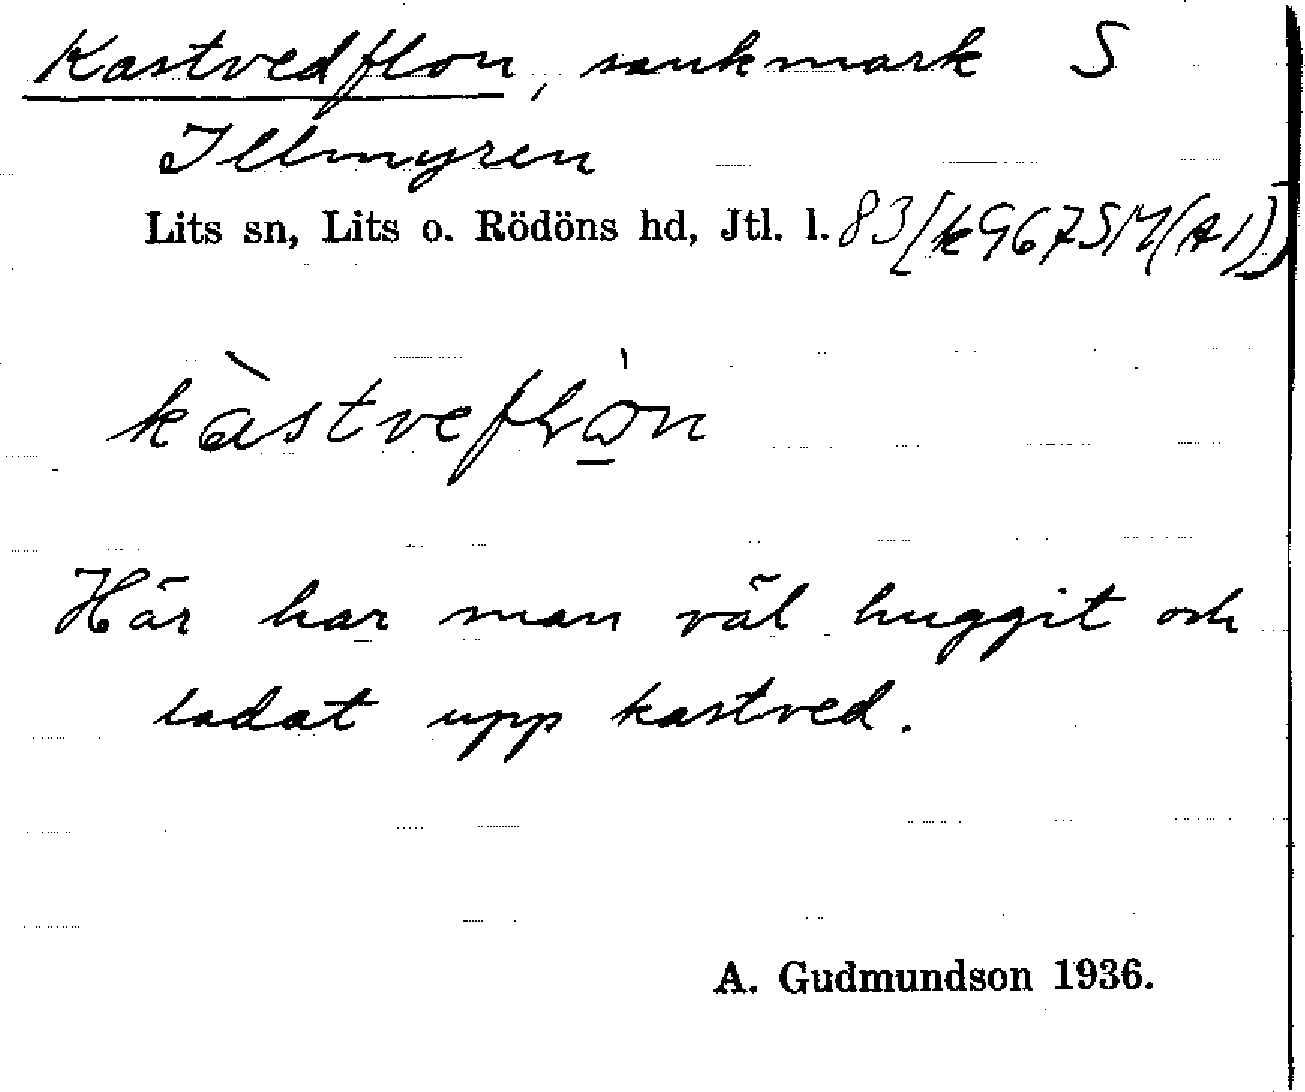 Kastvedflon, sankmark S
Illmyren
Lits sn, Lits o. Rödöns hd, Jtl. l. 83[k967SM(A1)]
kàstveflɷ̀n
Här har man väl huggit och
ladat upp kastved.
A. Gudmundson 1936.